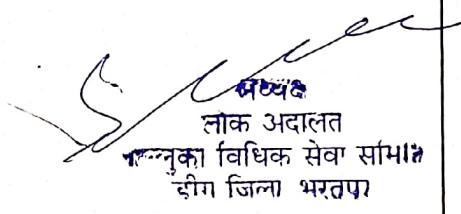 अध्यक्ष
लोक अदालत
ताल्लुका विधिक सेवा समिति
डीग जिला भरतपुर